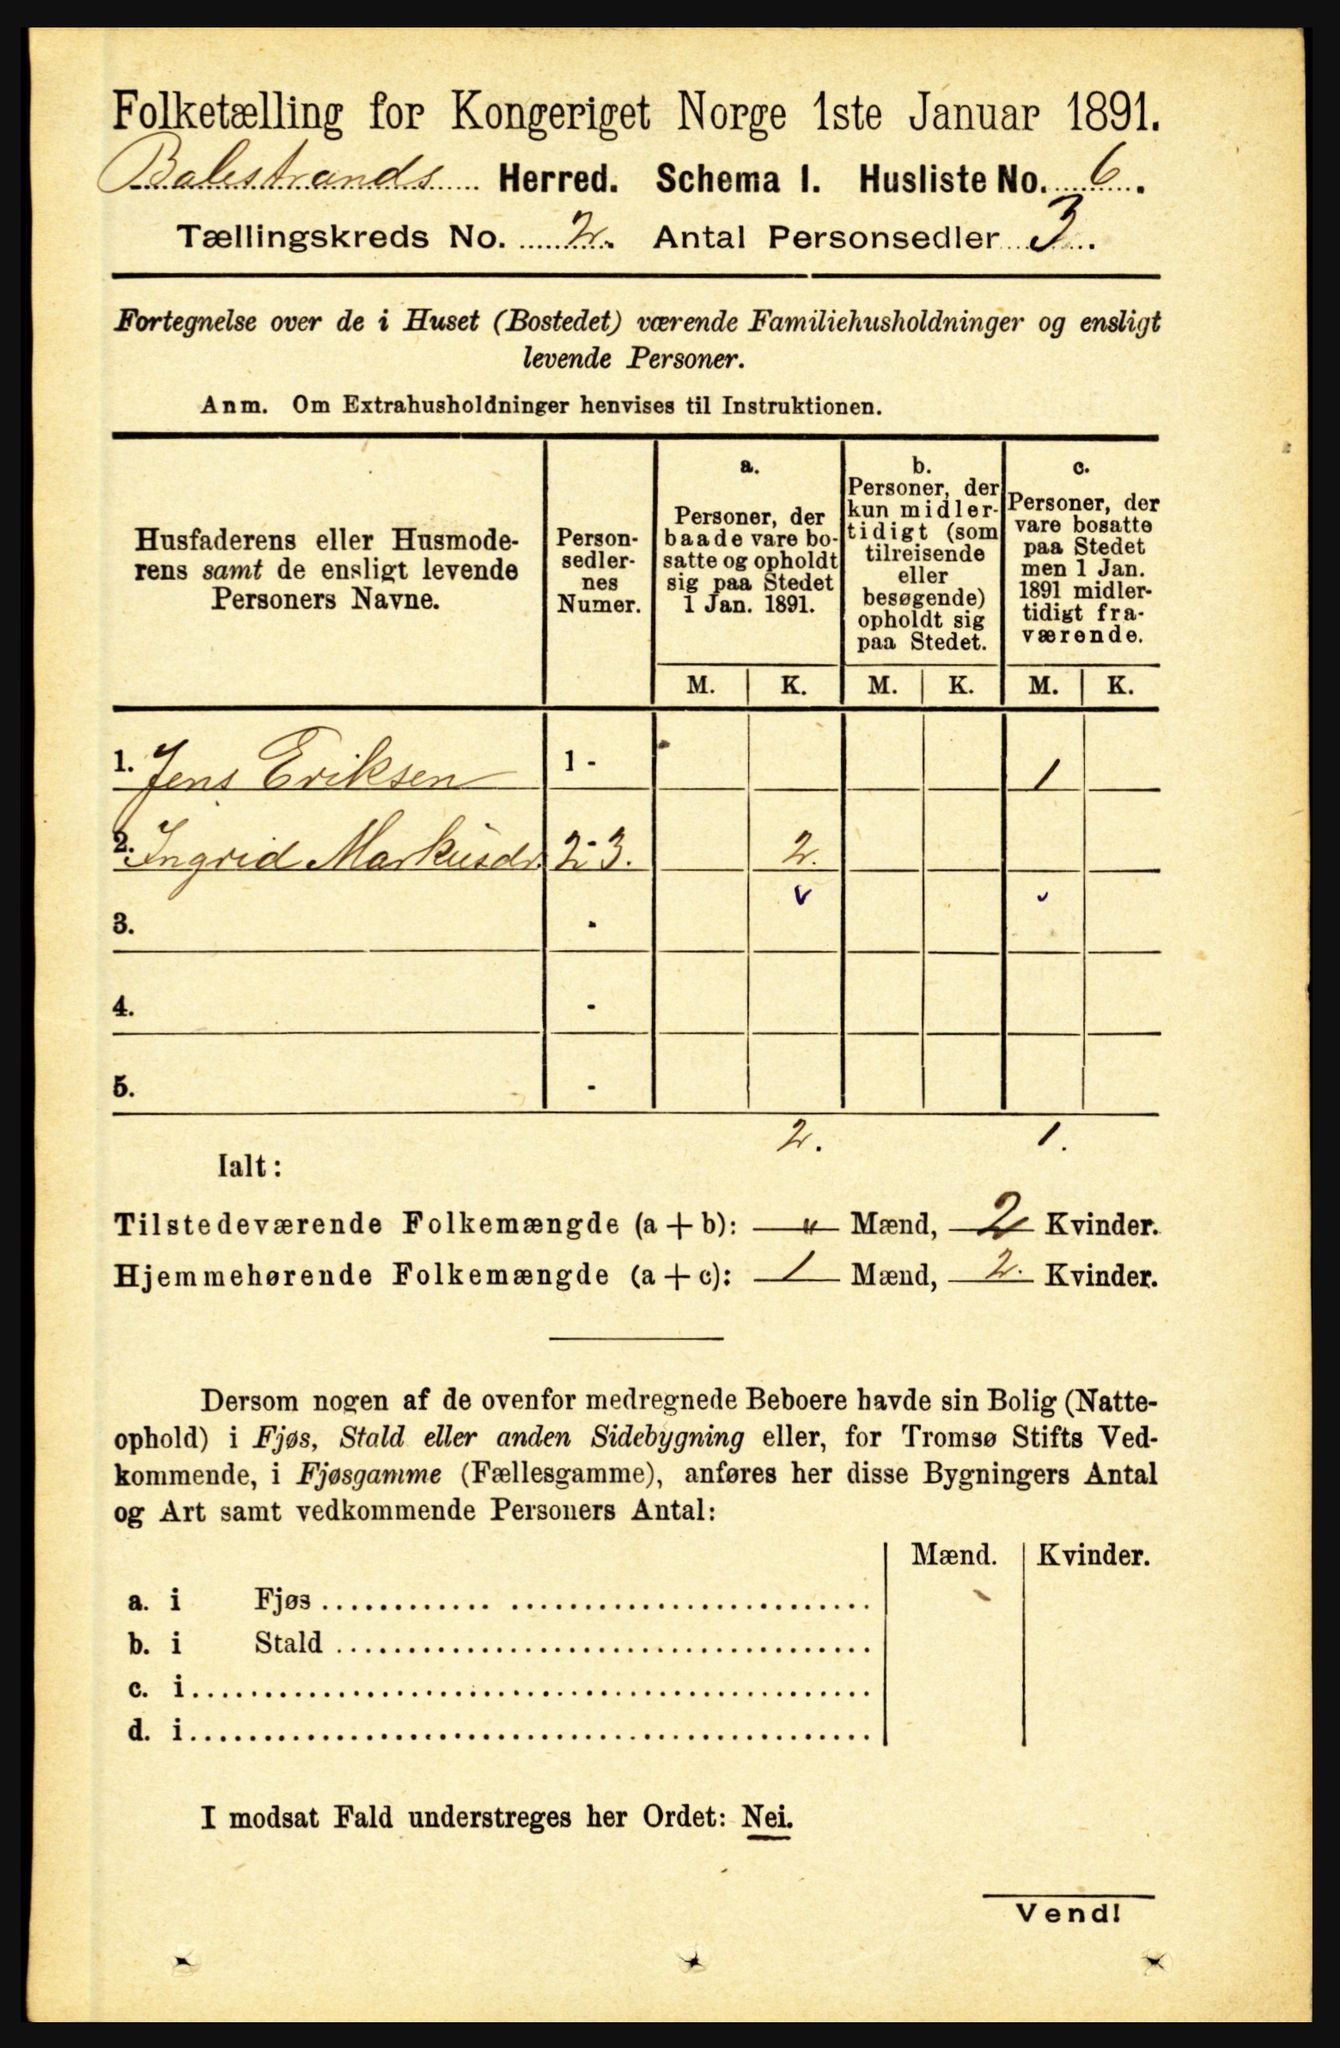 Folketælling for Kongeriget Norge 1ste Januar 1891.
Balestrands Herred. Schema I. Husliste No. 6.
Tællingskreds No. 2. Antal Personsedler 3.
Fortegnelse over de i Huset (Bostedet) værende Familiehusholdninger og ensligt
levende Personer.
Anm. Om Extrahusholdninger henvises til Instruktionen.
Husfaderens eller Husmode-
rens samt de ensligt levende
Personers Navne.
Person-
sedler-
nes
Numer.
a.
Personer, der
baade vare bo-
satte og opholdt
sig paa Stedet
1 Jan. 1891.
b.
Personer, der
kun midler-
tidigt (som
tilreisende
eller
besøgende)
opholdt sig
paa Stedet.
c.
Personer, der
vare bosatte
paa Stedet
men 1 Jan.
1891 midler-
tidigt fra-
værende.
M. K. M. K. M. K.
1. Jens Eriksen 1 - 1
2. Ingrid Markusdr. 2-3. 2.
3. -
4. -
5. -
2. 1.
Ialt:
Tilstedeværende Folkemængde (a + b): " Mænd, 2 Kvinder.
Hjemmehørende Folkemængde (a + c): 1 Mænd, 2. Kvinder.
Dersom nogen af de ovenfor medregnede Beboere havde sin Bolig (Natte-
ophold) i Fjøs, Stald eller anden Sidebygning eller, for Tromsø Stifts Ved-
kommende, i Fjøsgamme (Fællesgamme), anføres her disse Bygningers Antal
og Art samt vedkommende Personers Antal:
Mænd. Kvinder.
a. i Fjøs
b. i Stald
c. i
d. i
I modsat Fald understreges her Ordet: Nei.
Vend!